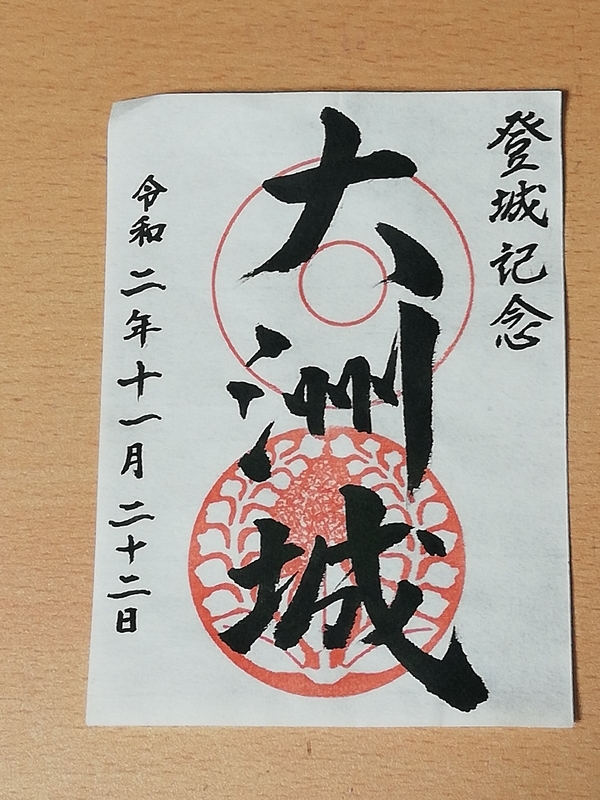 登城記念
大洲城
令和二年十一月二十二日